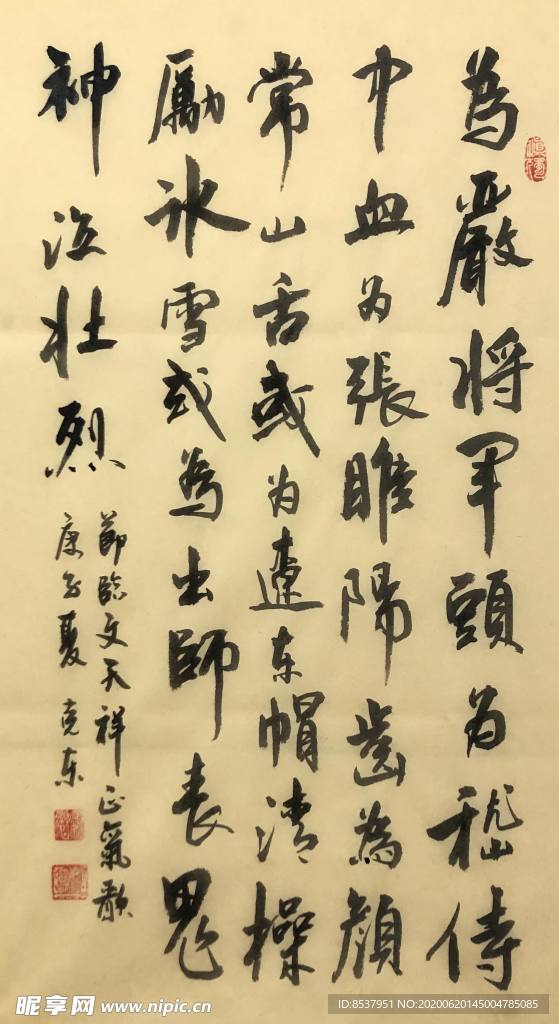 為嚴將軍頭为嵇侍
中血为張睢陽齒為顏
常山舌或为遼东帽清操
厲冰雪或為出師表鬼
神泣壮烈
節臨文天祥正氣歌
庚子夏 克东
昵享网 www.nipic.cn
ID:8537951 NO:20200620145004785085